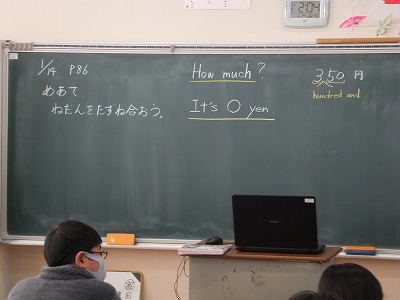 2:04
1/14 P86
めあて
ねだんをたずね合おう。
How much?
It's ○ yen
350 円
hundred and